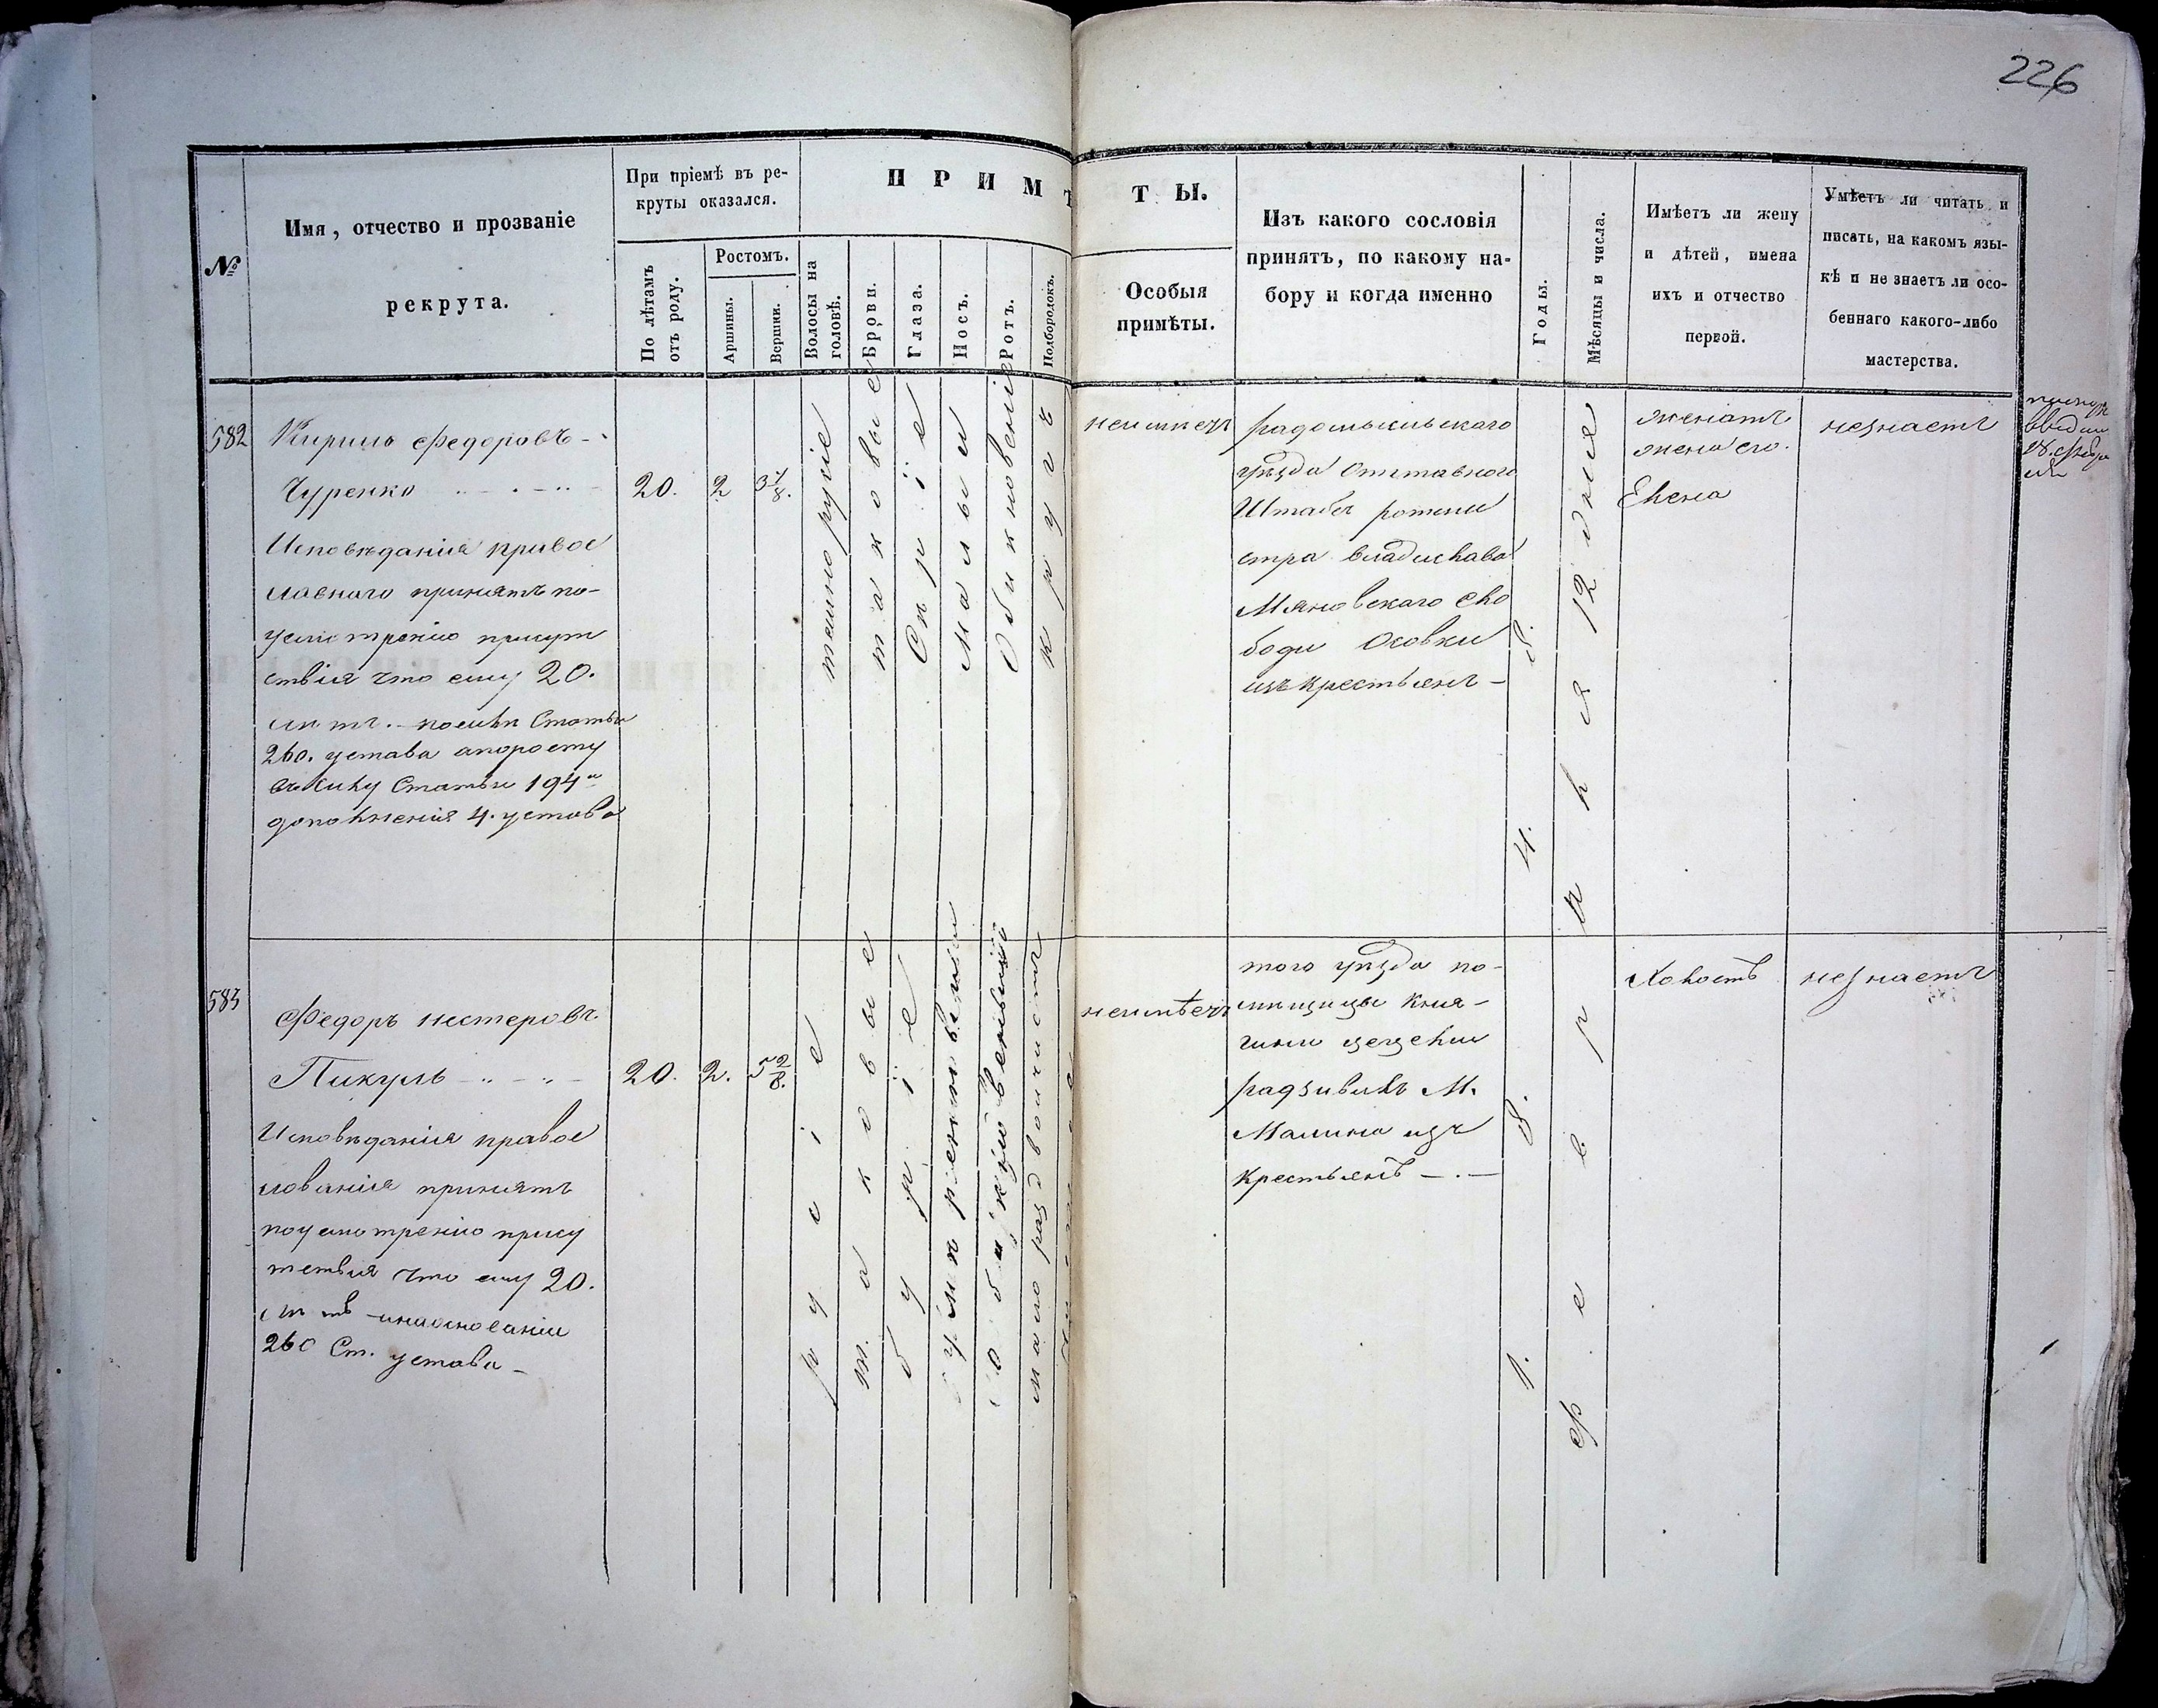 226
№
Имя, отчество и прозваніе
рекрута.
При пріемѣ въ ре-
круты оказался.
По лѣтамъ
отъ роду.
Ростомъ.
Аршины.
Вершки.
ПРИМѢ
Волосы на
головѣ.
Брови.
Глаза.
Носъ.
Ротъ.
Подбородокъ.
ТЫ.
Особыя
примѣты.
Изъ какого сословія
принятъ, по какому на-
бору и когда именно
Годы.
Мѣсяцы и числа.
Имѣетъ ли жену
и дѣтей, имена
ихъ и отчество
первой.
Умѣетъ ли читать и
писать, на какомъ язы-
кѣ и не знаетъ ли осо-
беннаго какого-либо
мастерства.
582
Кирило Федоровъ
Чуренко
Исповѣданія правос
лавного принятъ по-
усмотренію присут
ствія что ему 20.
лѣтъ. - посилѣ Статьи
260. устава апоросту
въ силу Статьи 194й
дополненія 4. устава
20.
2
3 1/8.
темнорусіе
таковые
Сѣріе
Малый
Обикновеній
кругъ
неимѣетъ
радомысльского
уѣзда Отставного
Штабсъ ротми
стра владислава
Мяновскаго сло
боди Осовки
изъ крестьянъ -
1 8. 4. 8.
Февраля 12 дня
женатъ
жена его.
Елена
незнаетъ
583
Федоръ нестеровъ
Пикуль
Исповѣданія правос
лованія принятъ
поусмотренію прису
тствія что ему 20.
лѣтъ -инаосновани
260 Ст. устава -
20.
2.
5 2/8.
русіе
таковые
буріе
умѣренный
обикновеный
мало раздвоистъ
неимѣетъ
того уѣзда по-
мѣщицы Кня-
гини
радзивилъ М.
Малина изъ
крестьянъ -.-
Холостъ
незнаетъ